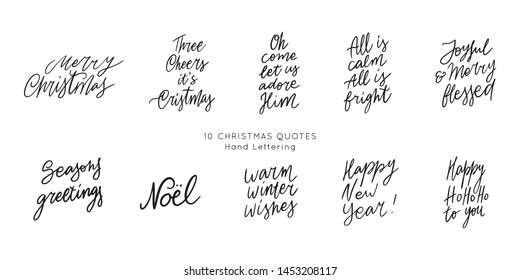 Merry
Christmas
Three
Cheers
it's
Cristmas
Oh
come
let us
adore
Him
All is
calm
All is
fright
Joyful
& Merry
flessed
10 CHRISTMAS QUOTES
Hand Lettering
Seasons
greetings
Noël
warm
winter
wishes
Happy
New
Year!
Happy
HoHoHo
to you
shutterstock
IMAGE ID: 1453208117
www.shutterstock.com